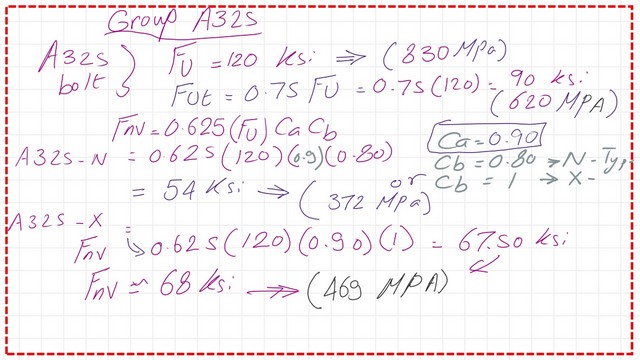 Group A325
A325 bolt } Fu = 120 Ksi ⇒ (830 MPa)
Fut = 0.75 Fu = 0.75(120) = 90 ksi
(620 MPA)
Fnv = 0.625(Fu) Ca Cb
Ca = 0.90
A325-N = 0.625(120)(0.9)(0.80)
Cb = 0.80 → N-Typ
= 54 Ksi → (372 MPa)
or
Cb = 1 → X-
A325-X =
Fnv ↳ 0.625(120)(0.90)(1) = 67.50 ksi
Fnv ≈ 68 Ksi → (469 MPA)